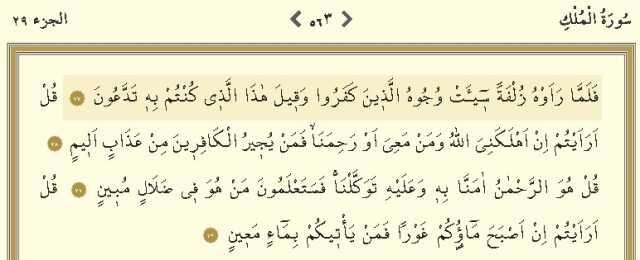 سُورَةُ الْمُلْكِ ٥٦٣ الجزء ٢٩
فَلَمَّا رَاَوْهُ زُلْفَةً سٖٓيـَٔتْ وُجُوهُ الَّذٖينَ كَفَرُوا وَقٖيلَ هٰذَا الَّذٖى كُنْتُمْ بِهٖ تَدَّعُونَ ٢٧ قُلْ
اَرَاَيْتُمْ اِنْ اَهْلَكَنِىَ اللّٰهُ وَمَنْ مَعِىَ اَوْ رَحِمَنَاۙ فَمَنْ يُجٖيرُ الْكَافِرٖينَ مِنْ عَذَابٍ اَلٖيمٍ ٢٨
قُلْ هُوَ الرَّحْمٰنُ اٰمَنَّا بِهٖ وَعَلَيْهِ تَوَكَّلْنَاۚ فَسَتَعْلَمُونَ مَنْ هُوَ فٖى ضَلَالٍ مُبٖينٍ ٢٩ قُلْ
اَرَاَيْتُمْ اِنْ اَصْبَحَ مَٓاؤُ۬كُمْ غَوْرًا فَمَنْ يَأْتٖيكُمْ بِمَٓاءٍ مَعٖينٍ ٣٠